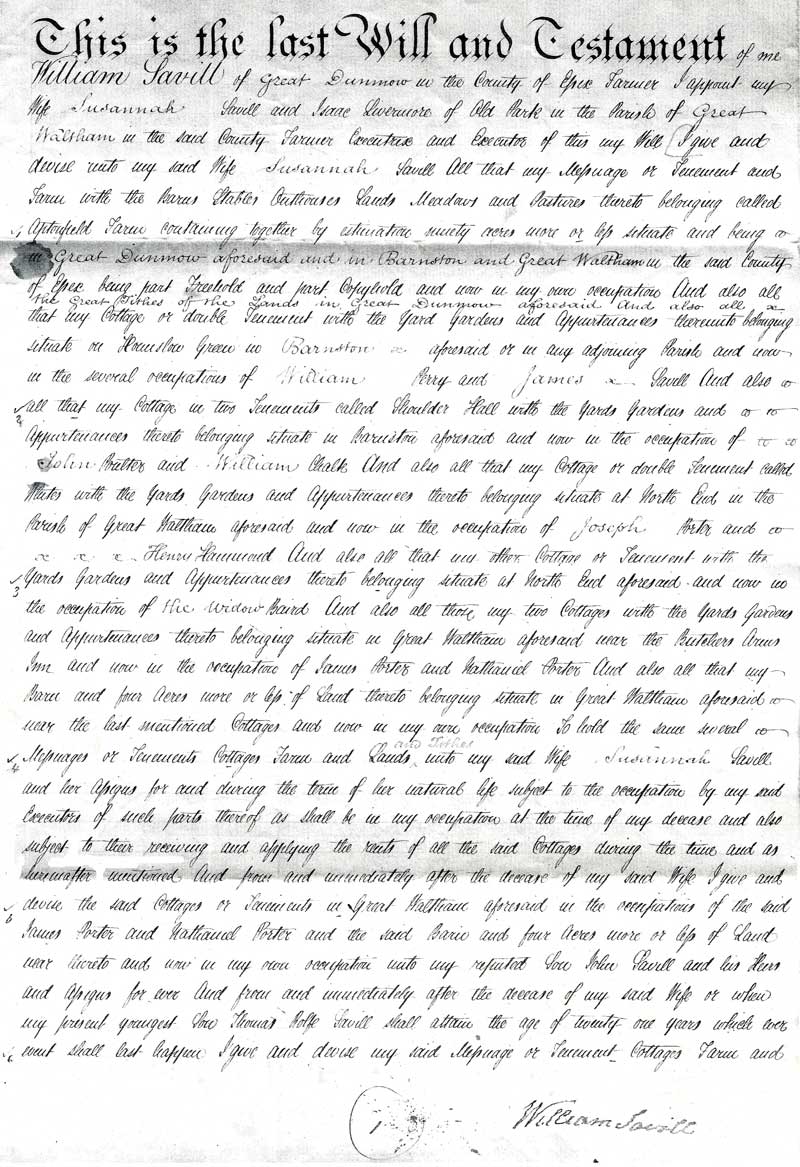 This is the last Will and Testament of me
William Savill of Great Dunmow in the County of Essex Farmer I appoint my
Wife Susannah Savill and Isaac Livermore of Old Park in the Parish of Great
Waltham in the said County Farmer Executrix and Executor of this my Will I give and
devise unto my said Wife Susannah Savill All that my Messuage or Tenement and
Farm with the Barns Stables Outhouses Lands Meadows and Pastures thereto belonging called
Absonfield Farm containing together by estimation ninety acres more or less situate and being
in Great Dunmow aforesaid and in Barnston and Great Waltham in the said County
of Essex being part Freehold and part Copyhold and now in my own occupation And also all
the Great Tithes of the Lands in Great Dunmow aforesaid And also all
that my Cottage or double Tenement with the Yard Gardens and Appurtenances thereunto belonging
situate on Hounslow Green in Barnston aforesaid or in any adjoining Parish and now
in the several occupations of William Perry and James Savill And also
2 all that my Cottage in two Tenements called Shoulder Hall with the Yards Gardens and
Appurtenances thereto belonging situate in Barnston aforesaid and now in the occupation of
John Poulter and William Chalk And also all that my Cottage or double Tenement called
Whites with the Yards Gardens and Appurtenances thereto belonging situate at North End in the
Parish of Great Waltham aforesaid and now in the occupation of Joseph Porter and
Henry Hammond And also all that my other Cottage or Tenement with the
3 Yards Gardens and Appurtenances thereto belonging situate at North End aforesaid and now in
the occupation of the Widow Baird And also all those my two Cottages with the Yards Gardens
and Appurtenances thereto belonging situate in Great Waltham aforesaid near the Butchers Arms
Inn and now in the occupation of James Porter and Nathaniel Porter And also all that my
Barn and four Acres more or less of Land thereto belonging situate in Great Waltham aforesaid
near the last mentioned Cottages and now in my own occupation To hold the same several
and Tithes
4 Messuages or Tenements Cottages Farm and Lands unto my said Wife Susannah Savill
and her Assigns for and during the term of her natural life subject to the occupation by my said
Executors of such parts thereof as shall be in my occupation at the time of my decease and also
subject to their receiving and applying the rents of all the said Cottages during the time and as
hereinafter mentioned And from and immediately after the decease of my said Wife I give and
devise the said Cottages or Tenements in Great Waltham aforesaid in the occupations of the said
James Porter and Nathaniel Porter and the said Barn and four Acres more or less of Land
near thereto and now in my own occupation unto my reputed Son John Savill and his Heirs
and Assigns for ever And from and immediately after the decease of my said Wife or when
my present youngest Son Thomas Rolfe Savill shall attain the age of twenty one years which ever
event shall last happen I give and devise my said Messuage or Tenement Cottages Farm and
1
William Savill